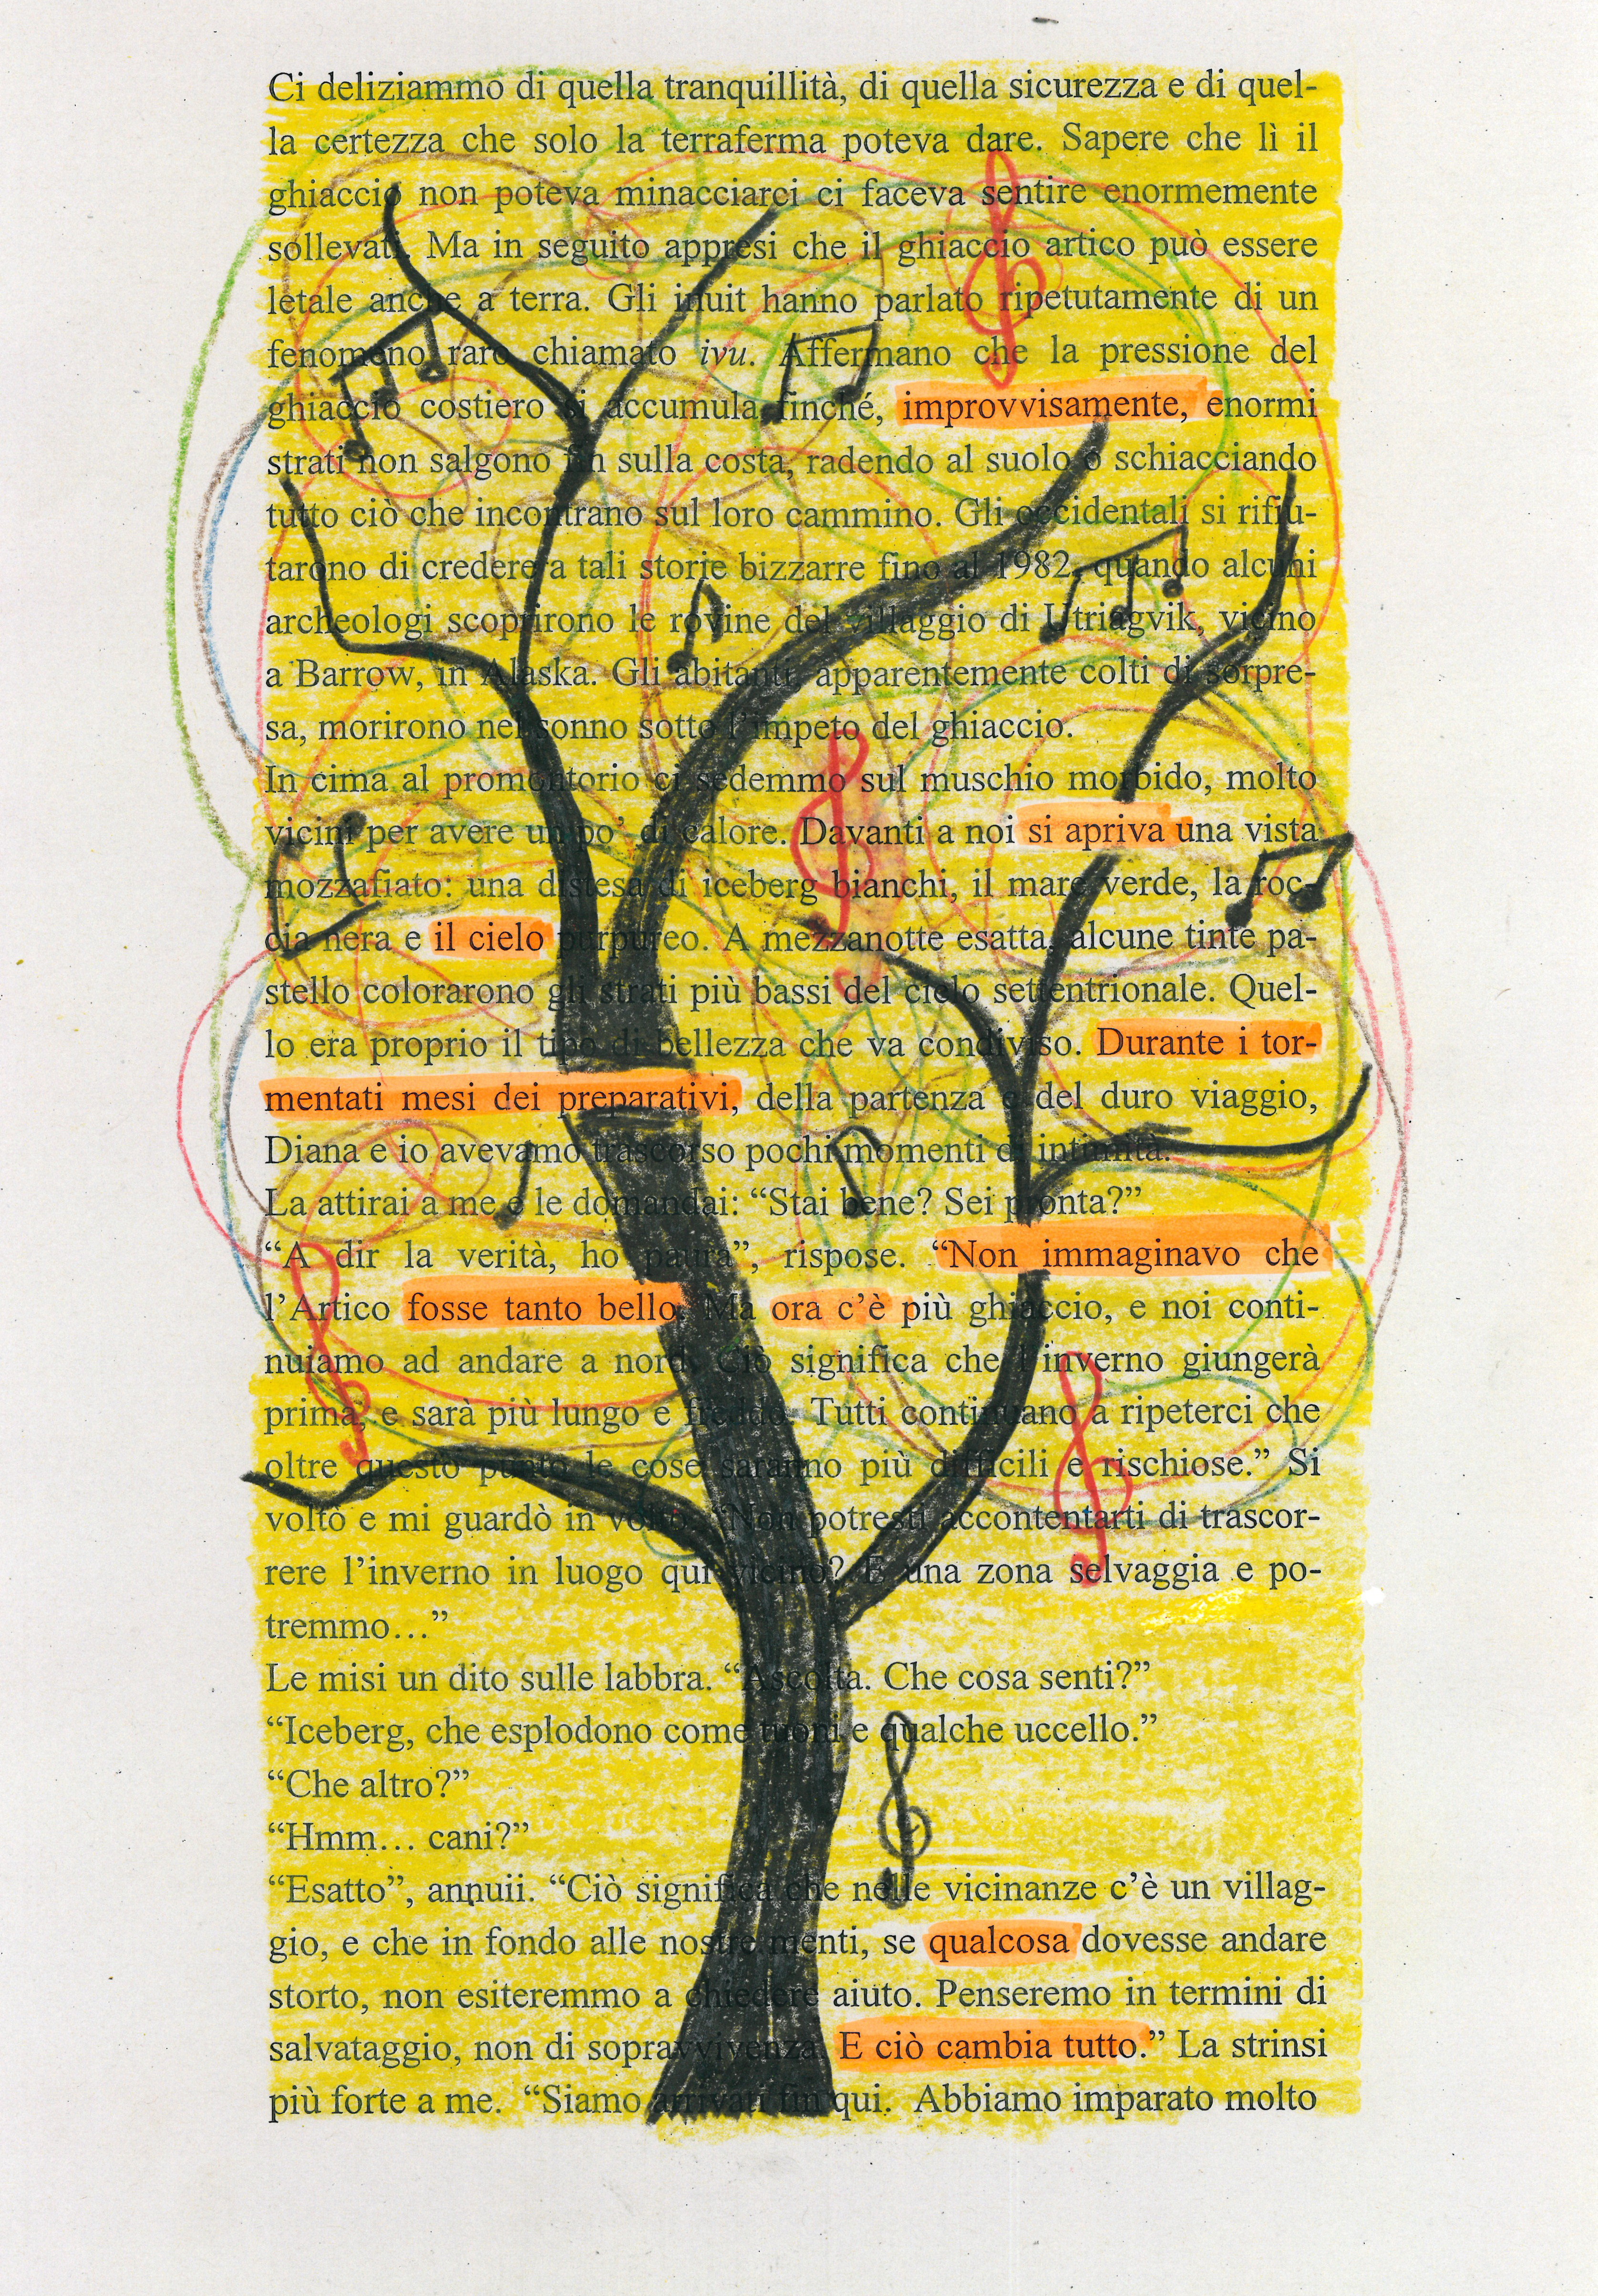 Ci deliziammo di quella tranquillità, di quella sicurezza e di quel-
la certezza che solo la terraferma poteva dare. Sapere che lì il
ghiaccio non poteva minacciarci ci faceva sentire enormemente
sollevati. Ma in seguito appresi che il ghiaccio artico può essere
letale anche a terra. Gli inuit hanno parlato ripetutamente di un
fenomeno raro chiamato ivu. Affermano che la pressione del
ghiaccio costiero si accumula finché, improvvisamente, enormi
strati non salgono fin sulla costa, radendo al suolo o schiacciando
tutto ciò che incontrano sul loro cammino. Gli occidentali si rifiu-
tarono di credere a tali storie bizzarre fino al 1982, quando alcuni
archeologi scoprirono le rovine del villaggio di Utriagvik, vicino
a Barrow, in Alaska. Gli abitanti, apparentemente colti di sorpre-
sa, morirono nel sonno sotto l'impeto del ghiaccio.
In cima al promontorio ci sedemmo sul muschio morbido, molto
vicini per avere un po' di calore. Davanti a noi si apriva una vista
mozzafiato: una distesa di iceberg bianchi, il mare verde, la roc-
cia nera e il cielo purpureo. A mezzanotte esatta, alcune tinte pa-
stello colorarono gli strati più bassi del cielo settentrionale. Quel-
lo era proprio il tipo di bellezza che va condiviso. Durante i tor-
mentati mesi dei preparativi, della partenza e del duro viaggio,
Diana e io avevamo trascorso pochi momenti di intimità.
La attirai a me e le domandai: “Stai bene? Sei pronta?”
“A dir la verità, ho paura”, rispose. “Non immaginavo che
l’Artico fosse tanto bello. Ma ora c’è più ghiaccio, e noi conti-
nuiamo ad andare a nord. Ciò significa che l’inverno giungerà
prima, e sarà più lungo e freddo. Tutti continuano a ripeterci che
oltre questo punto le cose saranno più difficili e rischiose.” Si
voltò e mi guardò in volto. “Non potresti accontentarti di trascor-
rere l’inverno in luogo qui vicino? È una zona selvaggia e po-
tremmo…”
Le misi un dito sulle labbra. “Ascolta. Che cosa senti?”
“Iceberg, che esplodono come tuoni e qualche uccello.”
“Che altro?”
“Hmm… cani?”
“Esatto”, annuii. “Ciò significa che nelle vicinanze c’è un villag-
gio, e che in fondo alle nostre menti, se qualcosa dovesse andare
storto, non esiteremmo a chiedere aiuto. Penseremo in termini di
salvataggio, non di sopravvivenza. E ciò cambia tutto.” La strinsi
più forte a me. “Siamo arrivati fin qui. Abbiamo imparato molto